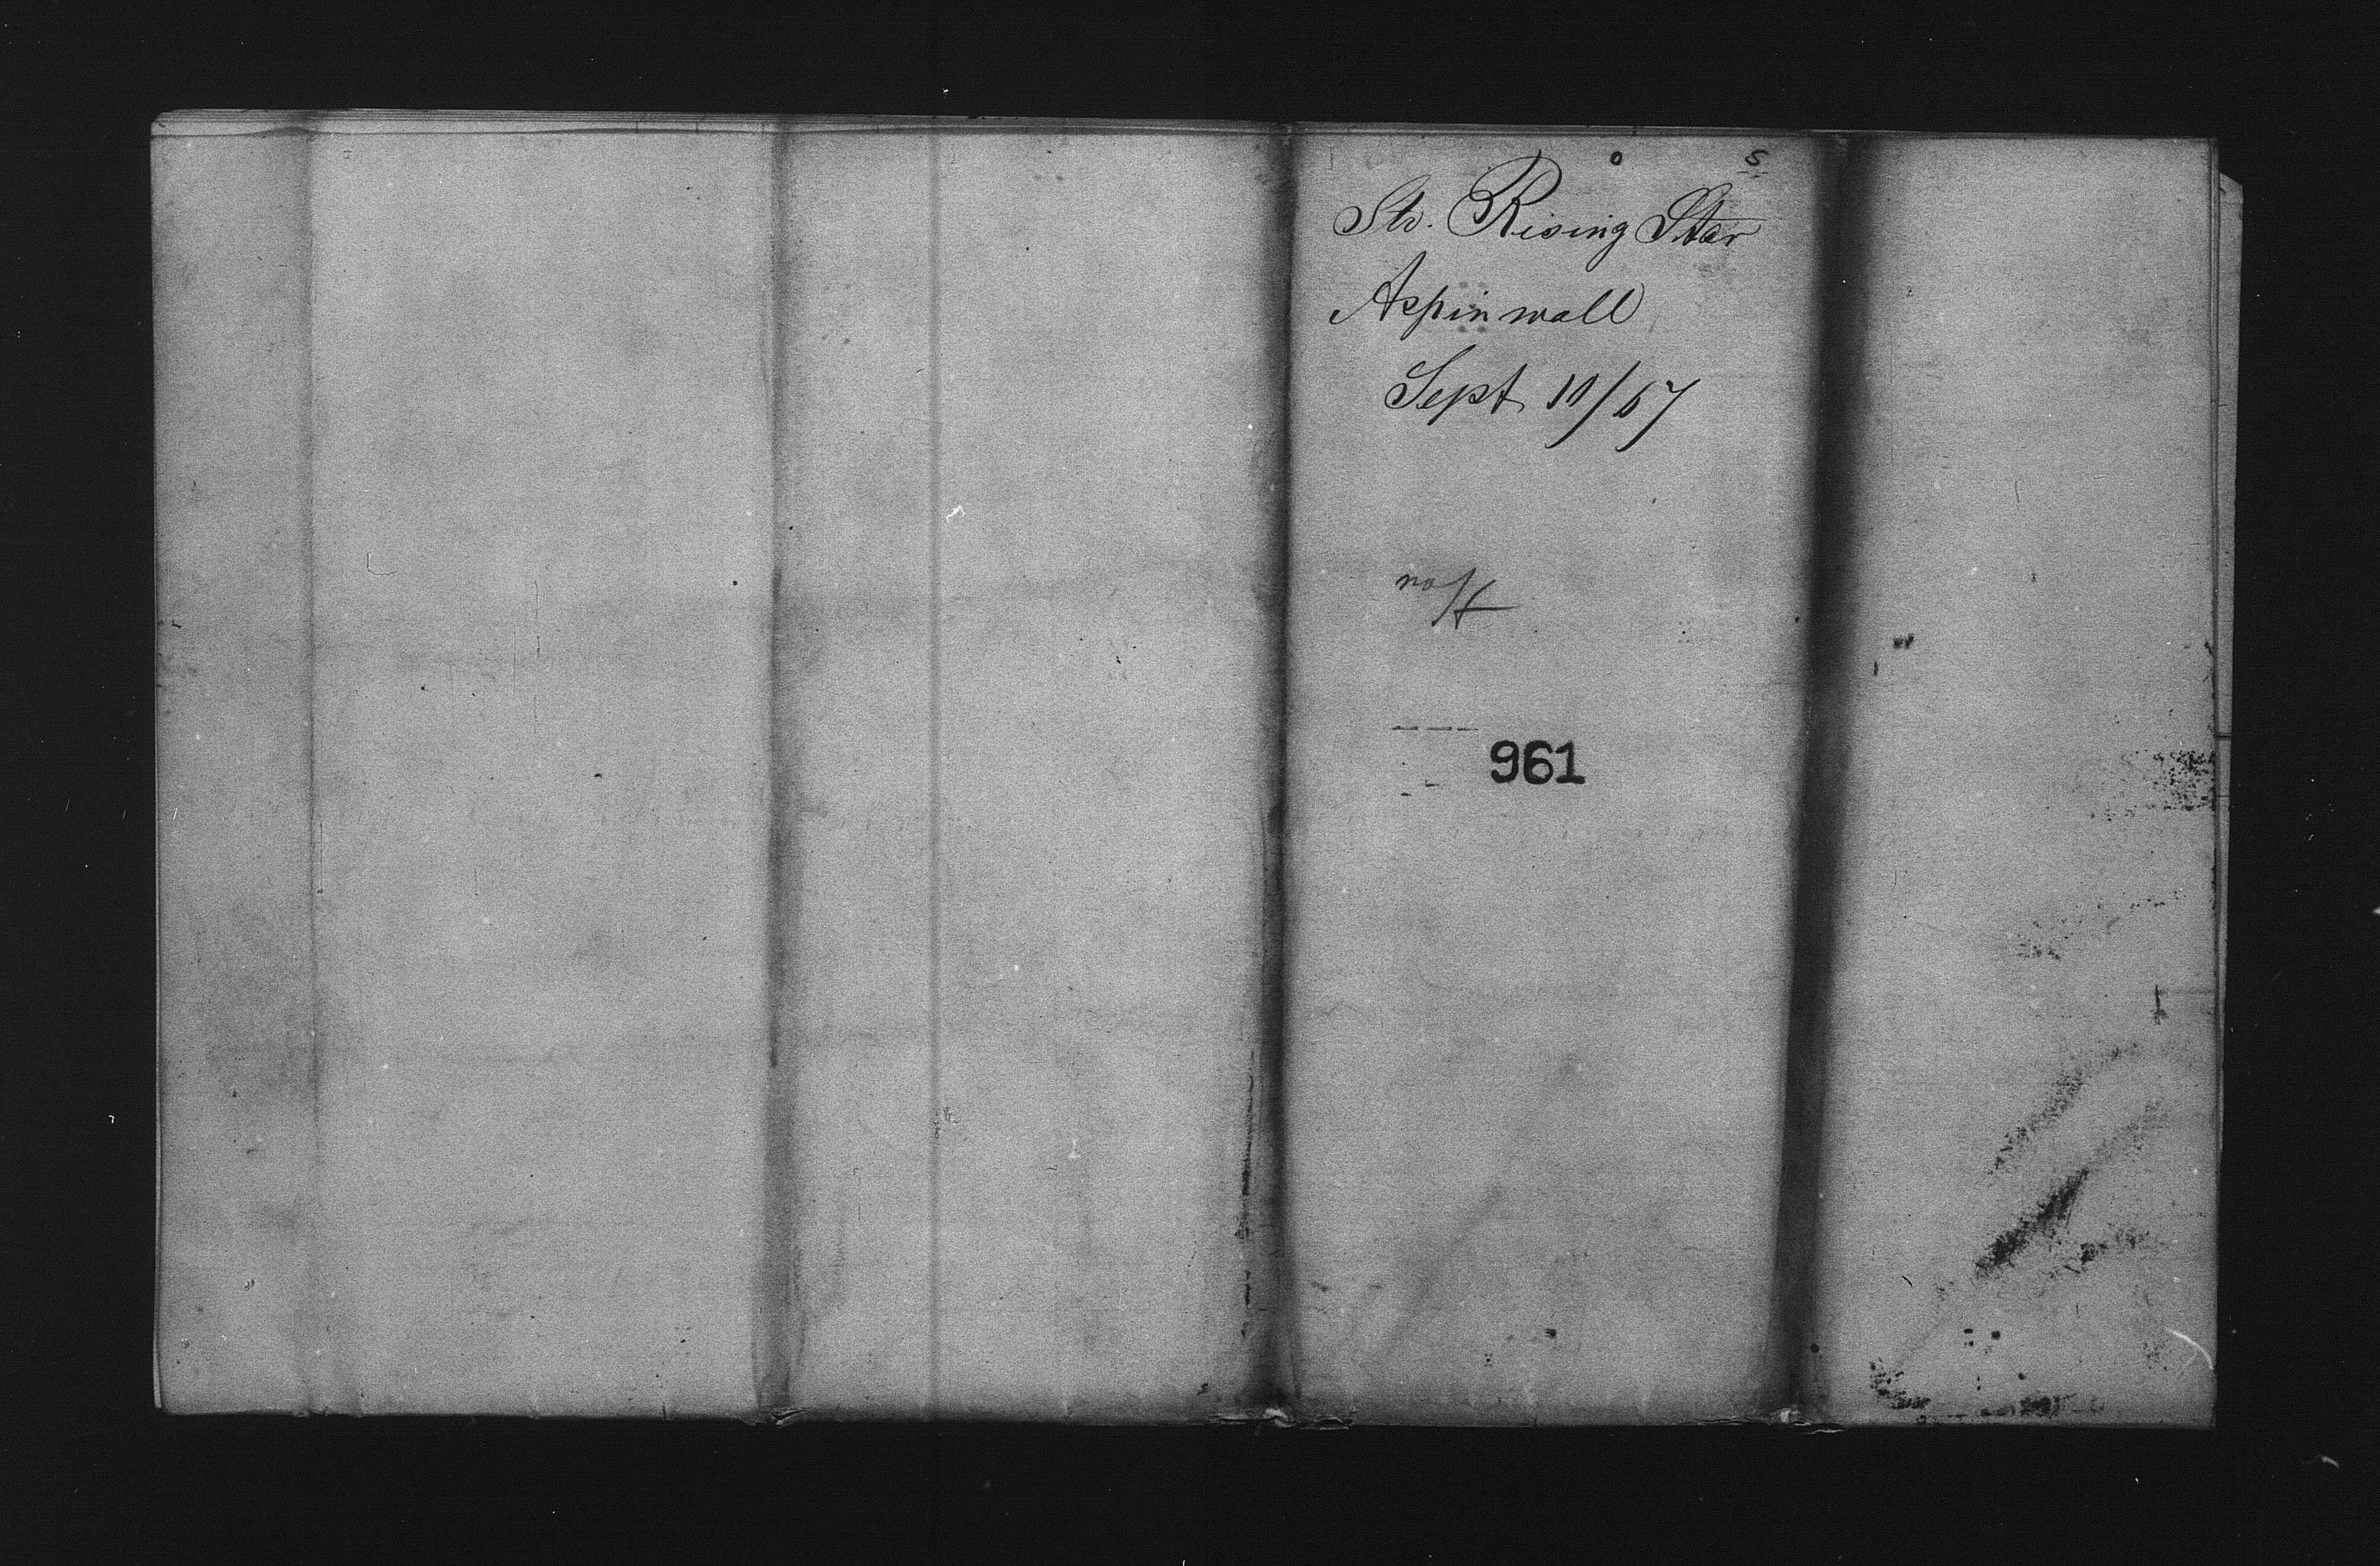 S
Str. Rising Star
Aspinwall
Sept 10/67
961